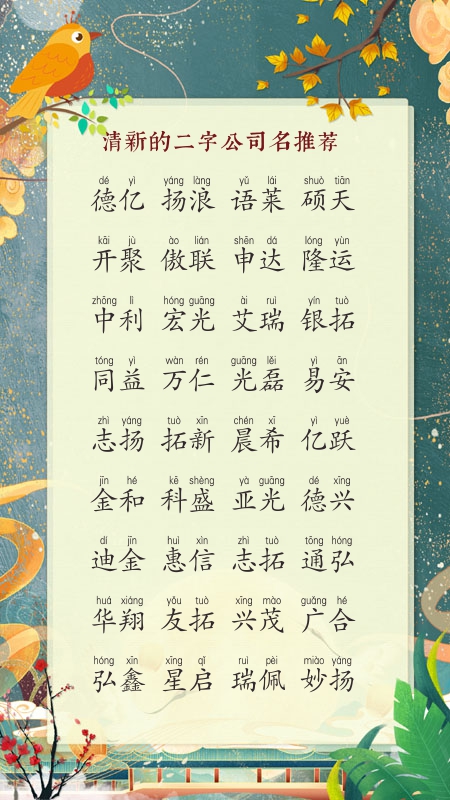 清新的二字公司名推荐
dé yì yáng làng yǔ lái shuò tiān
德亿 扬浪 语莱 硕天
kāi jù ào lián shēn dá lóng yùn
开聚 傲联 申达 隆运
zhōng lì hóng guāng ài ruì yín tuò
中利 宏光 艾瑞 银拓
tóng yì wàn rén guāng lěi yì ān
同益 万仁 光磊 易安
zhì yáng tuò xīn chén xī yì yuè
志扬 拓新 晨希 亿跃
jīn hé kē shèng yà guāng dé xīng
金和 科盛 亚光 德兴
dí jīn huì xìn zhì tuò tōng hóng
迪金 惠信 志拓 通弘
huá xiáng yǒu tuò xīng mào guǎng hé
华翔 友拓 兴茂 广合
hóng xīn xīng qǐ ruì pèi miào yáng
弘鑫 星启 瑞佩 妙扬